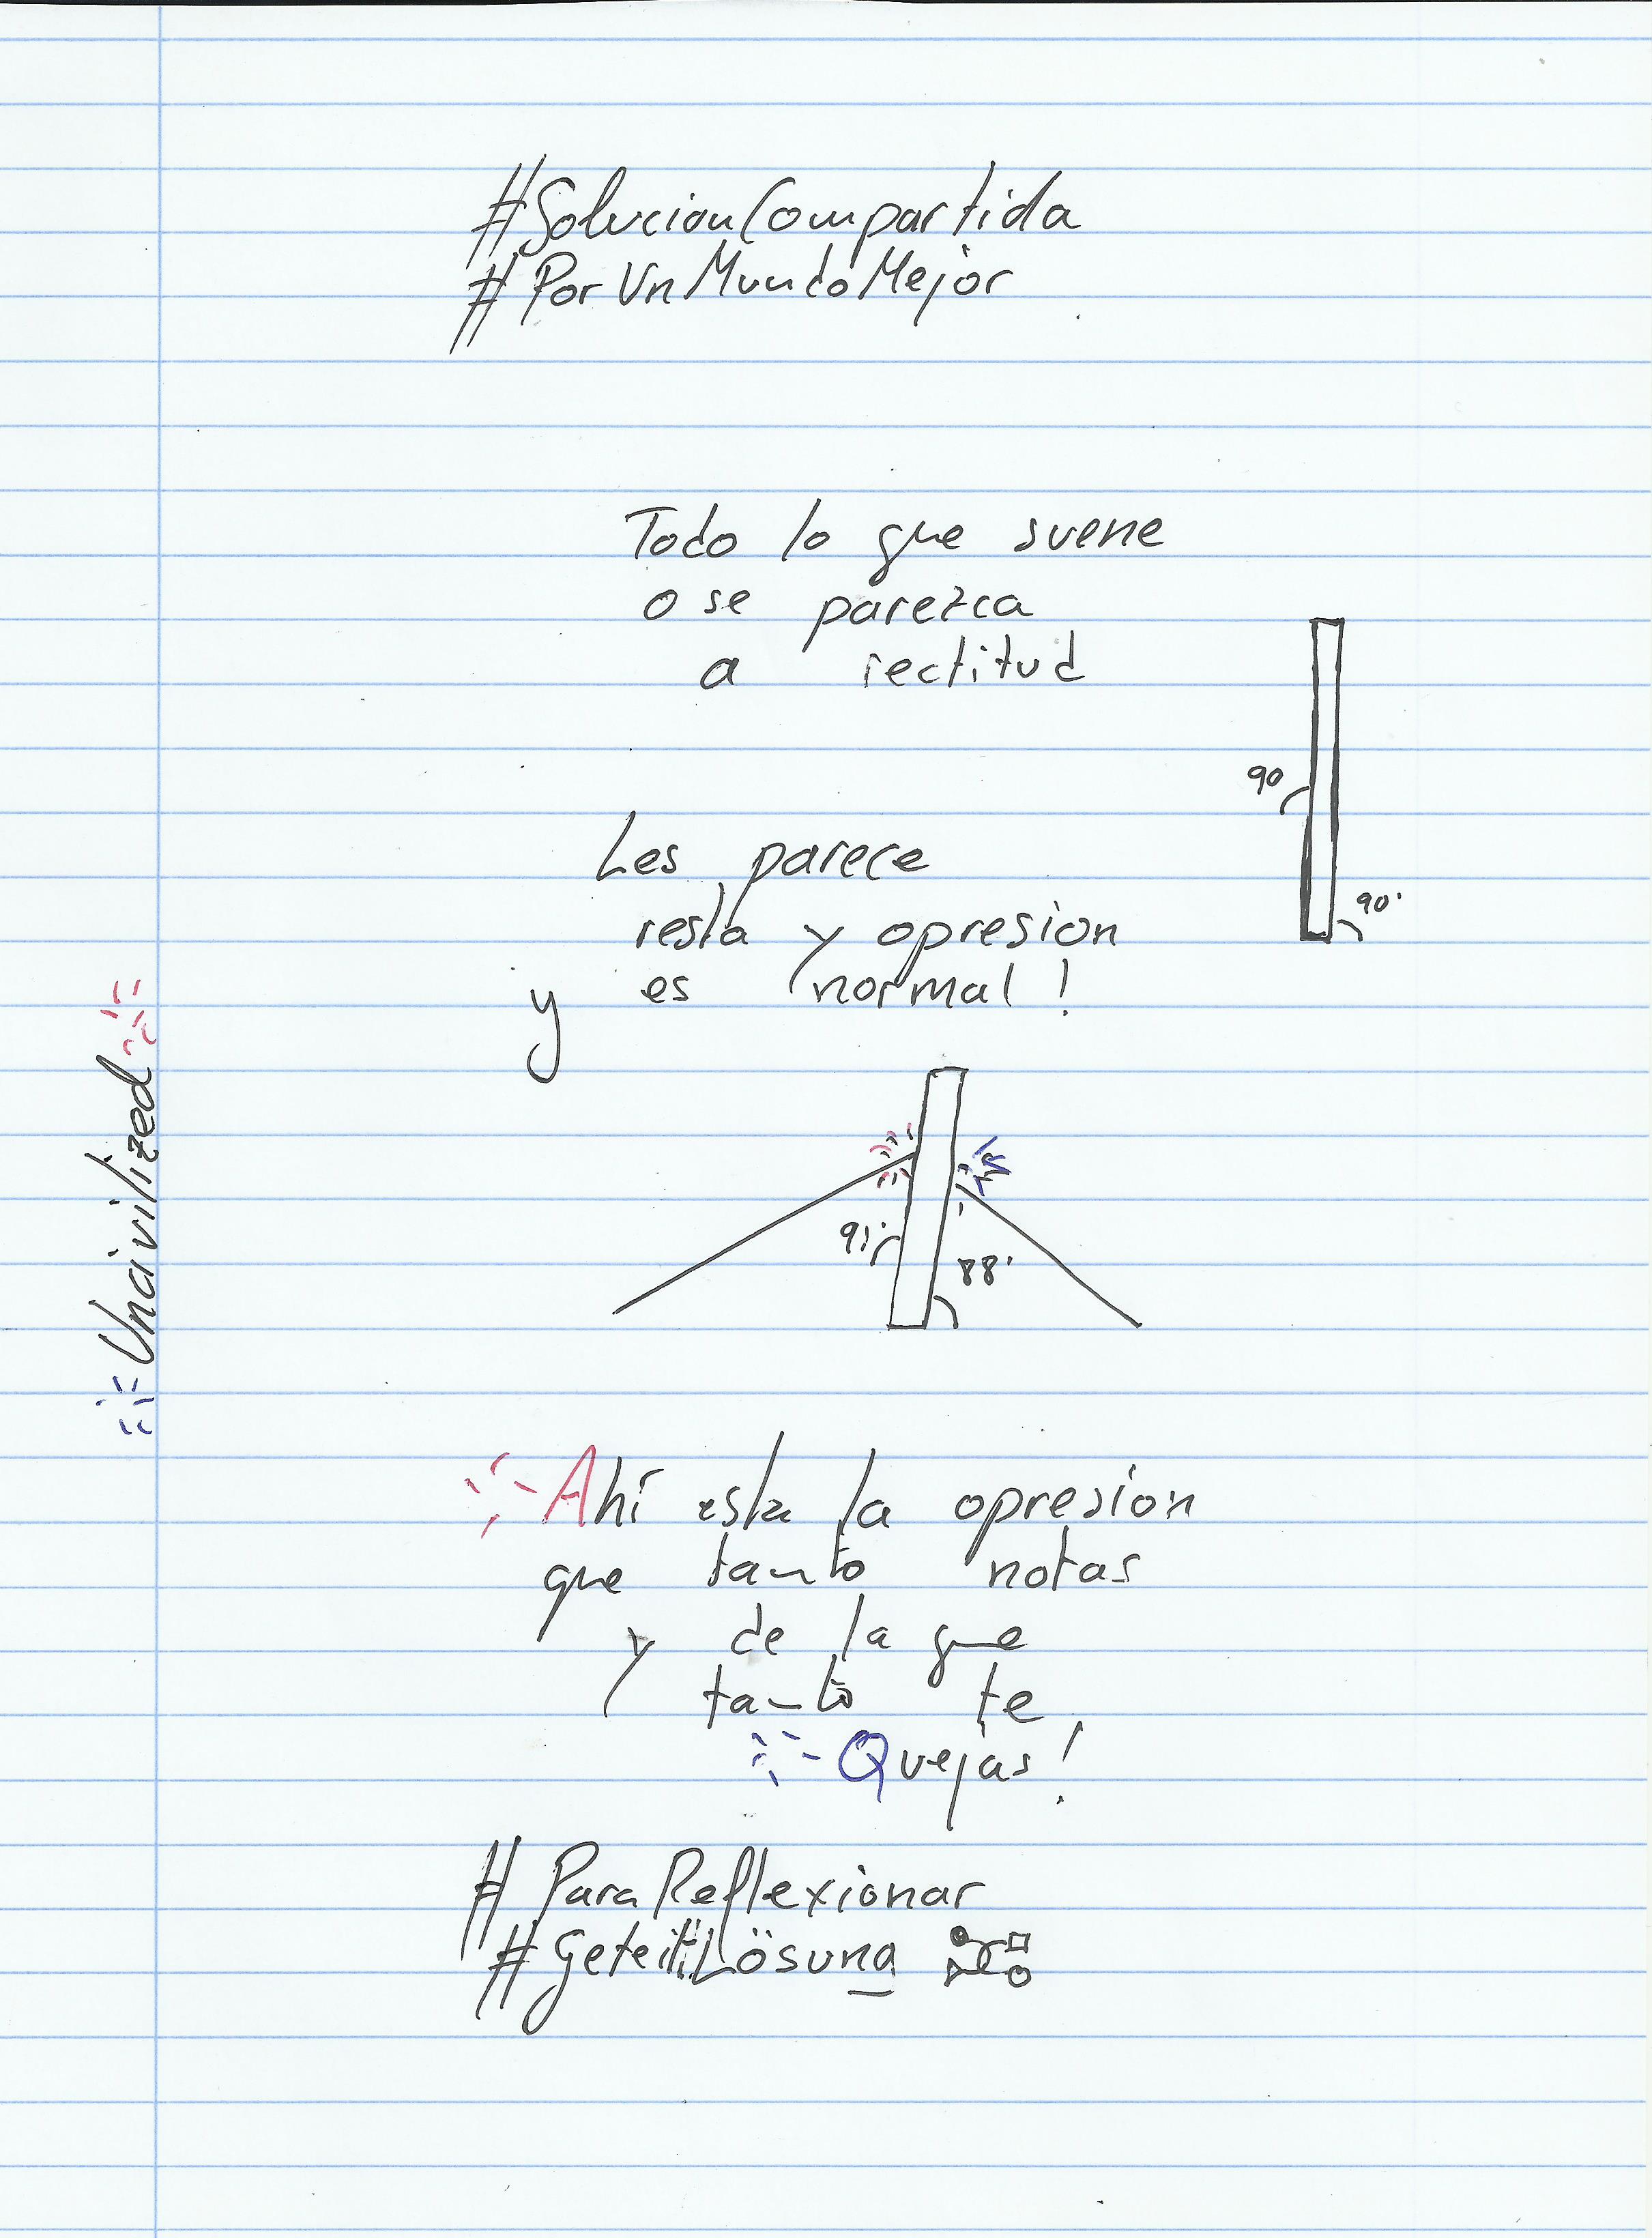 #SolucionCompartida
#PorUnMundoMejor
Todo lo que suene
o se parezca
a rectitud
90
90°
Les parece
resta y opresion
y es normal!
91°
88°
Uncivilized
Ahí esta la opresion
que tanto notas
y de la que
tanto te
Quejas!
#ParaReflexionar
#GeteiltLösung